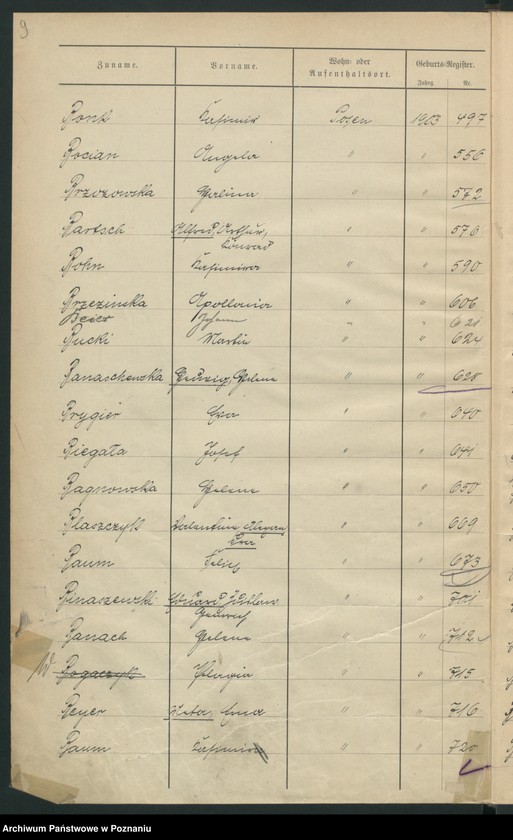 9
Zuname. Vorname. Wohn- oder Aufenthaltsort. Geburts-Register.
Jahrg. Nr.
Bonk Kasimir Posen 1903 497
Bocian Angela " " 556
Brzozowska Halina " " 572
Bartsch Alfred, Arthur, " " 576
Konrad
Bohn Kasimira " " 590
Brzezinska Apollonia " " 606
Beier Johann " " 621
Bucki Martin " " 624
Banaschewska Hedwig, Helene " " 628
Brygier Eva " " 640
Biegała Josef " " 641
Bagnowska Helene " " 650
Blaszczyk Valentine " " 669
Eva
Baum Felix " " 673
Binaszewski Eduard " " 701
Heinrich
Banach Helene " " 712
Bogaczyk Pelagia " " 715
Beyer Erna " " 716
Baum Kasimira " " 720
Archiwum Państwowe w Poznaniu